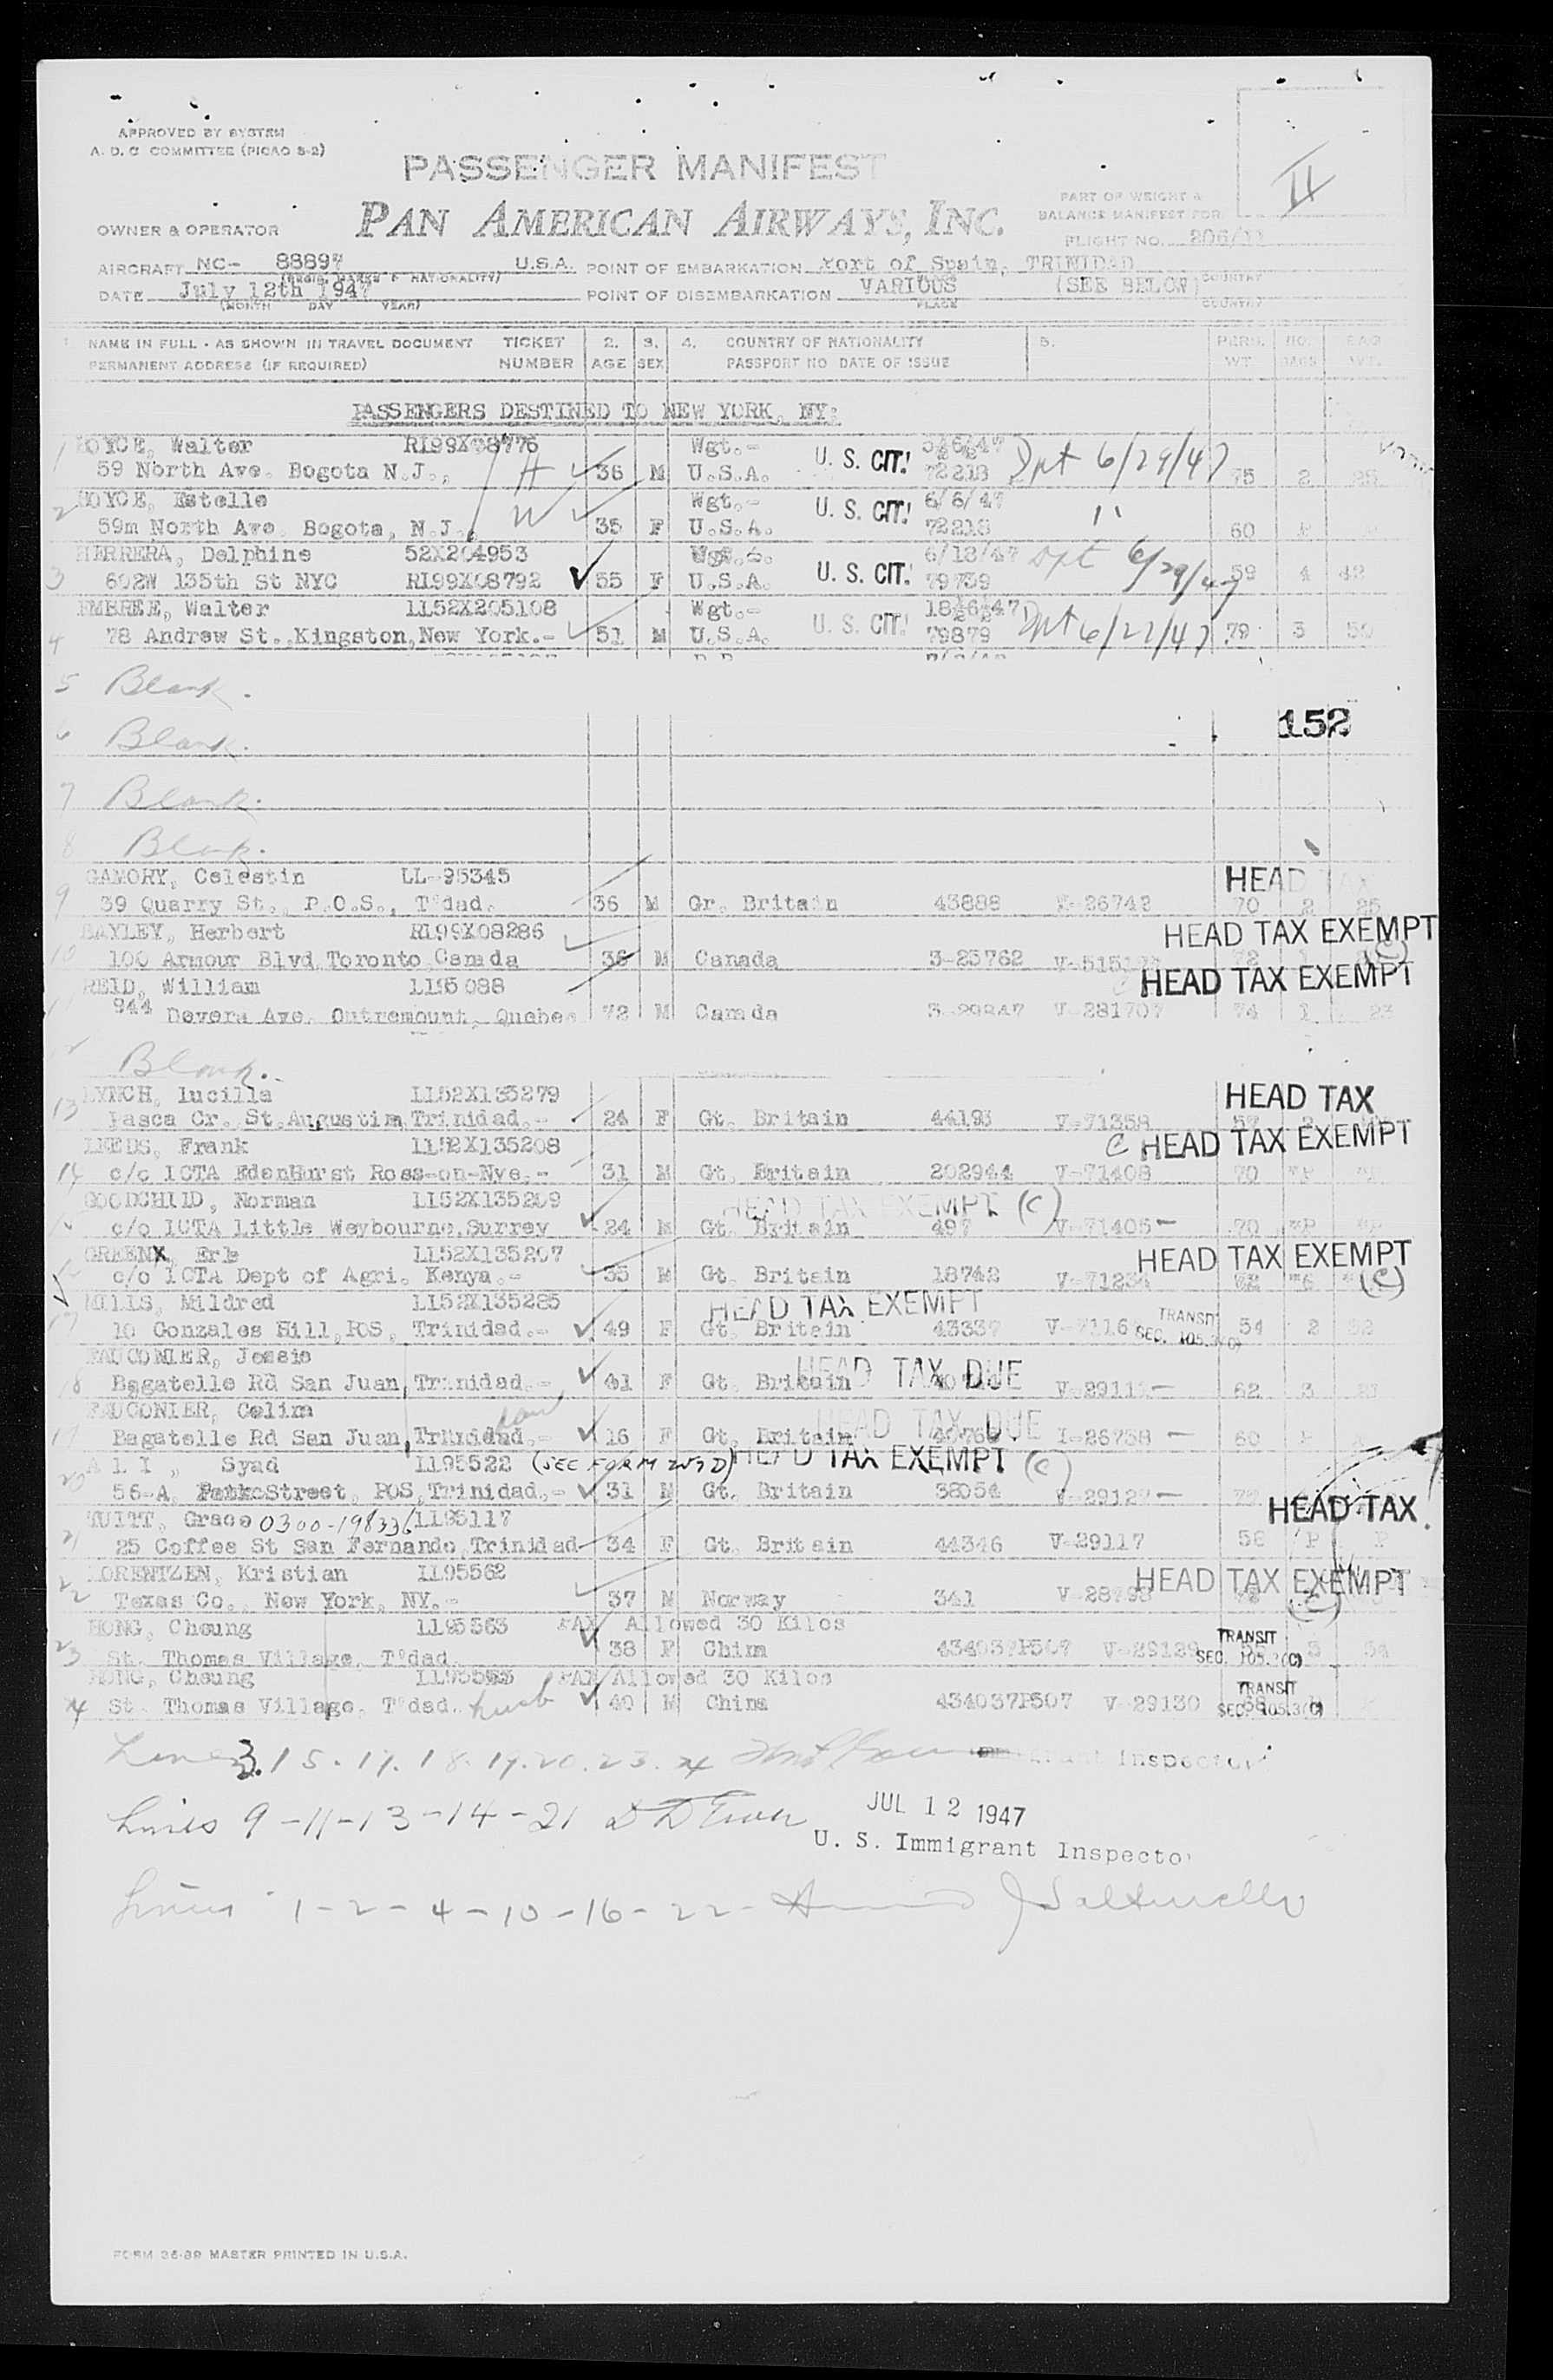 APPROVED BY SYSTEM
A. D. C COMMITTEE (PICAO S-2)
PASSENGER MANIFEST
PAN AMERICAN AIRWAYS, INC.
PART OF WEIGHT &
BALANCE MANIFEST FOR
II
OWNER & OPERATOR
FLIGHT NO. 206/11
AIRCRAFT NC- 88897 U.S.A. POINT OF EMBARKATION Port of Spain, TRINIDAD
(REGIS. MARKS & NATIONALITY) PLACE COUNTRY
DATE July 12th 1947 POINT OF DISEMBARKATION VARIOUS (SEE BELOW)
(MONTH DAY YEAR) PLACE COUNTRY
1. NAME IN FULL - AS SHOWN IN TRAVEL DOCUMENT TICKET 2. 3. 4. COUNTRY OF NATIONALITY 5. PERS. NO. BAG
PERMANENT ADDRESS (IF REQUIRED) NUMBER AGE SEX PASSPORT NO DATE OF ISSUE WT. BAGS WT.
PASSENGERS DESTINED TO NEW YORK, NY:
1 BOYCE, Walter RI99X08776 Wgt.- U. S. CIT. 5/6/47 Dpt 6/29/47
59 North Ave. Bogota N.J., H 36 M U.S.A. 72213 75 2 25
2 BOYCE, Estelle Wgt.- U. S. CIT. 6/6/47 "
59m North Ave. Bogota, N.J., W 35 F U.S.A. 72213 60 P
HERRERA, Delphine 52X204953 Wgt.- 6/18/47 Dpt 6/29/47
3 602W 135th St NYC RI99X08792 55 F U.S.A. U. S. CIT. 79739 59 4 42
EMBREE, Walter LL52X205108 Wgt.- 18/6/47 Dpt 6/22/47
4 78 Andrew St., Kingston, New York.- 51 M U.S.A. U. S. CIT. 79879 79 3 50
5 Blank.
6 Blank. 152
7 Blank.
8 Blank.
GAMORY, Celestin LL-95345 HEAD TAX
9 39 Quarry St., P.O.S., T'dad. 36 M Gr. Britain 43888 V-26742 70 2 25
BAYLEY, Herbert RL99X08286 HEAD TAX EXEMPT
10 100 Armour Blvd Toronto Canada 36 M Canada 3-25762 72 1 (C)
REID, William LL95088 C HEAD TAX EXEMPT
944 Devera Ave. Outremount, Quebec 72 M Canada 3-29247 V-281707 74 1 23
12 Blank.
LYNCH, lucilla LL52X135279 HEAD TAX
13 Pasca Cr. St. Augustin, Trinidad.- 24 F Gt. Britain 44193 V-71358 57 2
LEEDS, Frank LL52X135208 C HEAD TAX EXEMPT
14 c/o ICTA EdenHurst Ross-on-Nye.- 31 M Gt. Britain 202944 V-71408 70 *P
GOODCHILD, Norman LL52X135209 HEAD TAX EXEMPT (C)
c/o ICTA Little Weybourne, Surrey 24 M Gt. Britain 497 V-71405- 70 *P
GREENX, Eric LL52X135207 HEAD TAX EXEMPT
c/o ICTA Dept of Agri. Kenya.- 35 M Gt. Britain 18742 72 *6 (C)
MILLS, Mildred LL52X135285 HEAD TAX EXEMPT TRANSIT
10 Gonzales Hill, POS, Trinidad.- 49 F Gt. Britain 43337 SEC. 105.3(C) 54 2 32
FAUCONIER, Jessie HEAD TAX DUE
18 Bagatelle Rd San Juan, Trinidad.- 41 F Gt. Britain 62 3
FAUCONIER, Celina HEAD TAX DUE
19 Bagatelle Rd San Juan, Trinidad.- 16 F Gt. Britain I-26758 - 60 P
ALI, Syad LL95522 HEAD TAX EXEMPT (C)
20 56-A, Street, POS, Trinidad.- 31 M Gt. Britain 38054
TUITT, Grace 0300-198336 LL95117 HEAD TAX
21 25 Coffee St San Fernando, Trinidad- 34 F Gt. Britain 44346 V-29117 58 P P
LORENTZEN, Kristian LL95562 HEAD TAX EXEMPT
22 Texas Co., New York, NY.- 37 M Norway 341 V-28798 (C)
HONG, Cheung LL95563 PAX Allowed 30 Kilos TRANSIT
23 St. Thomas Village, T'dad. 38 F China 434037P507 V-29129 SEC. 105.3(C) 3 54
HONG, Cheung PAX Allowed 30 Kilos TRANSIT
24 St. Thomas Village, T'dad. husb 40 M China 434037P507 V-29130 SEC. 105.3(C)
Lines 3.15.17.18.19.20.23.24 Inspector
Lines 9-11-13-14-21 JUL 12 1947
U. S. Immigrant Inspector
Lines 1-2-4-10-16-22-
FORM 36-89 MASTER PRINTED IN U.S.A.